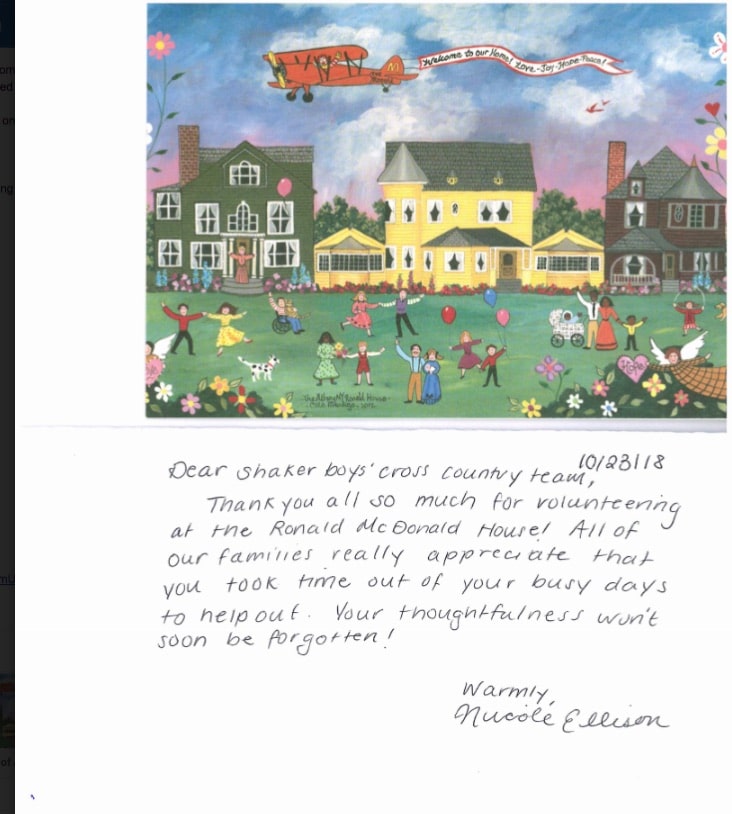 Welcome to our Home! Love-Joy-Hope-Peace!
Hope
10/23/18
Dear Shaker boys' cross country team,
Thank you all so much for volunteering
at the Ronald McDonald House! All of
our families really appreciate that
you took time out of your busy days
to help out. Your thoughtfulness won't
soon be forgotten!
Warmly,
Nicole Ellison